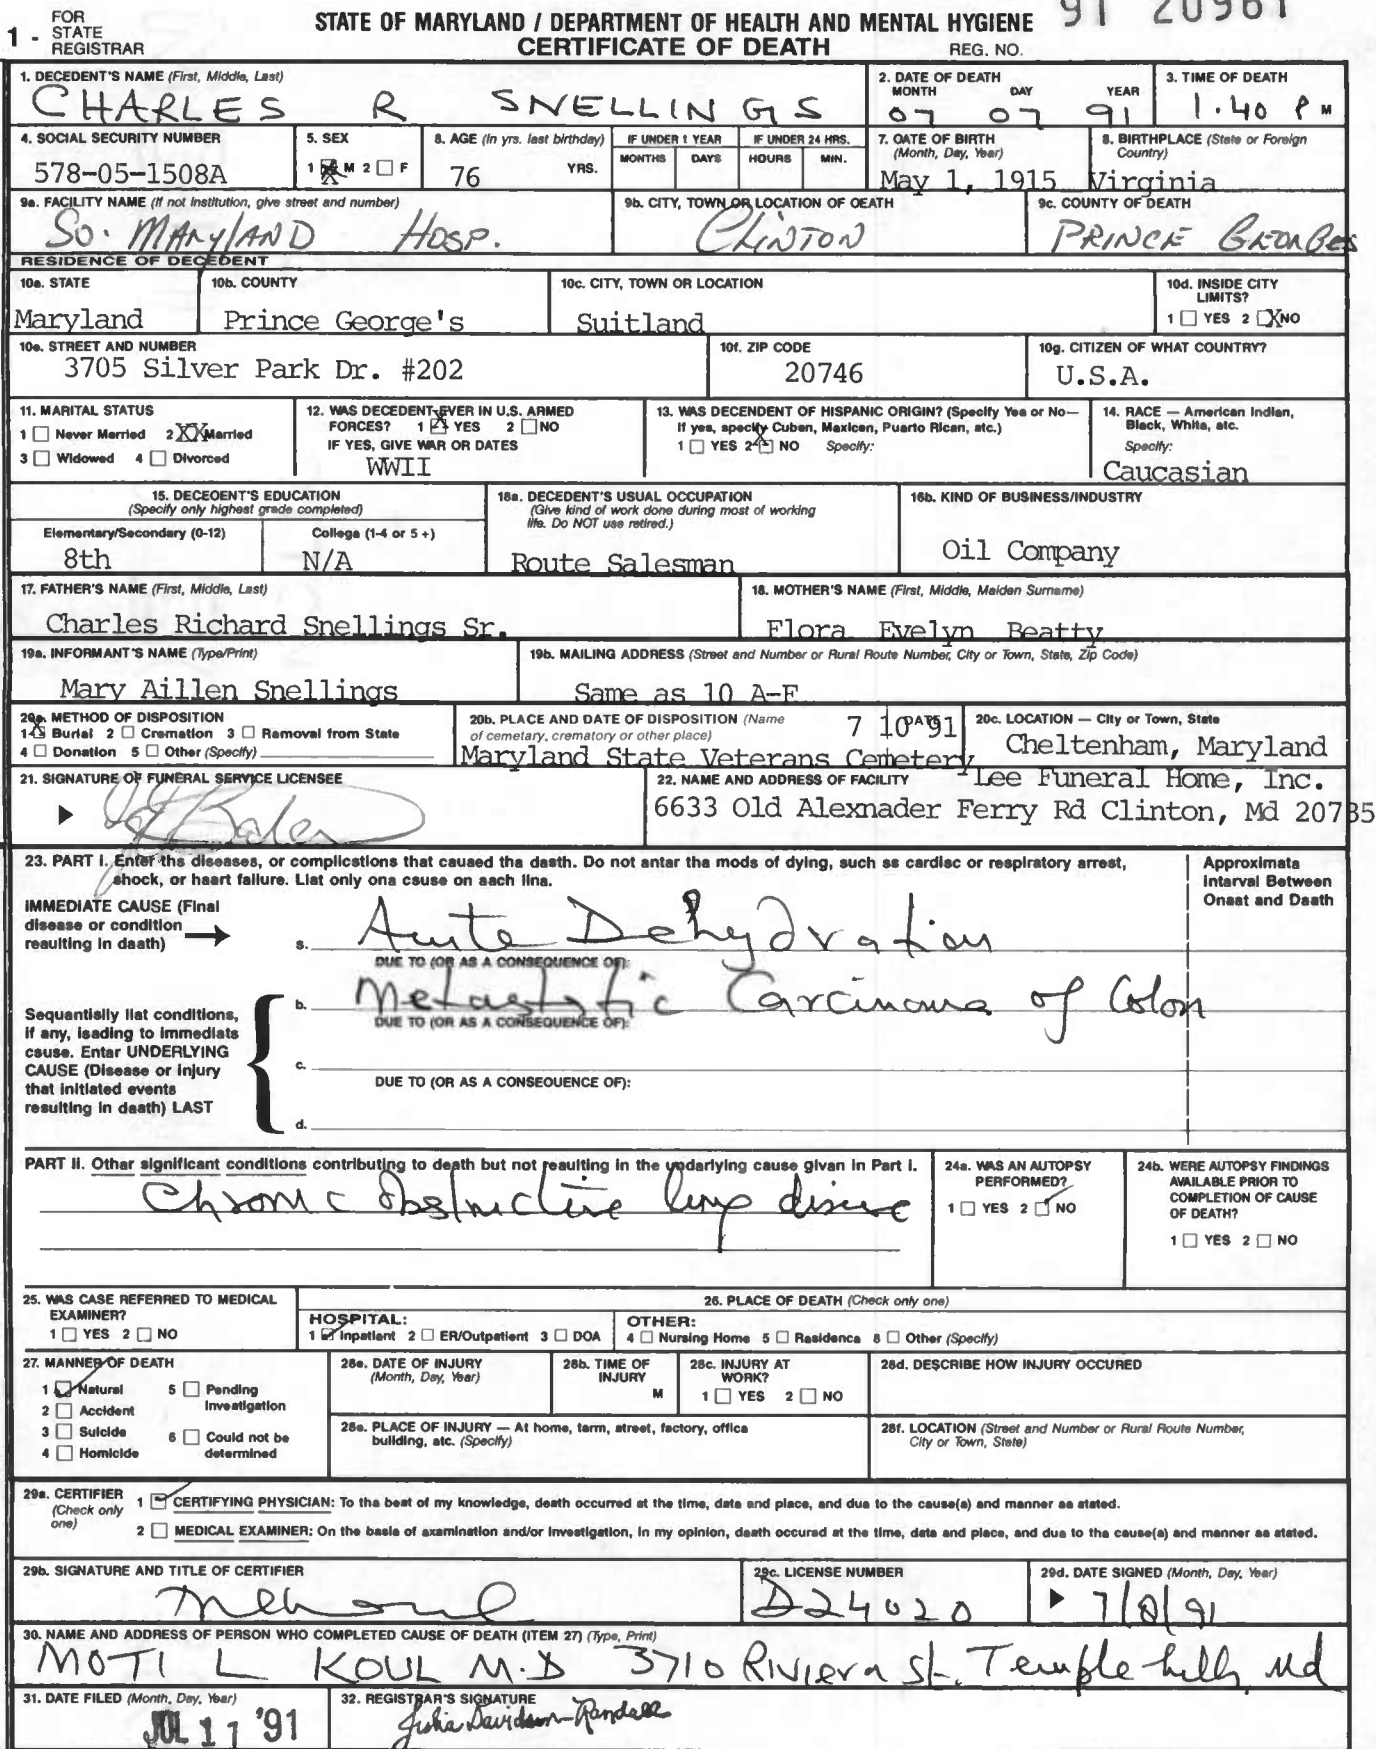 1 - FOR STATE REGISTRAR
STATE OF MARYLAND / DEPARTMENT OF HEALTH AND MENTAL HYGIENE
CERTIFICATE OF DEATH
REG. NO. 91 20961
1. DECEDENT'S NAME (First, Middle, Last)
CHARLES R SNELLINGS
2. DATE OF DEATH
MONTH DAY YEAR
07 07 91
3. TIME OF DEATH
1.40 P M
4. SOCIAL SECURITY NUMBER
578-05-1508A
5. SEX
1 X M 2 ☐ F
8. AGE (In yrs. last birthday)
76 YRS.
IF UNDER 1 YEAR
MONTHS DAYS
IF UNDER 24 HRS.
HOURS MIN.
7. DATE OF BIRTH
(Month, Day, Year)
May 1, 1915
8. BIRTHPLACE (State or Foreign Country)
Virginia
9a. FACILITY NAME (If not institution, give street and number)
SO. MARYLAND HOSP.
9b. CITY, TOWN OR LOCATION OF DEATH
CLINTON
9c. COUNTY OF DEATH
PRINCE GEORGES
RESIDENCE OF DECEDENT
10a. STATE
Maryland
10b. COUNTY
Prince George's
10c. CITY, TOWN OR LOCATION
Suitland
10d. INSIDE CITY LIMITS?
1 ☐ YES 2 X NO
10e. STREET AND NUMBER
3705 Silver Park Dr. #202
10f. ZIP CODE
20746
10g. CITIZEN OF WHAT COUNTRY?
U.S.A.
11. MARITAL STATUS
1 ☐ Never Married 2 XX Married
3 ☐ Widowed 4 ☐ Divorced
12. WAS DECEDENT EVER IN U.S. ARMED
FORCES? 1 X YES 2 ☐ NO
IF YES, GIVE WAR OR DATES
WWII
13. WAS DECENDENT OF HISPANIC ORIGIN? (Specify Yes or No—
If yes, specify Cuben, Maxicen, Puarto Rican, atc.)
1 ☐ YES 2 X NO Specify:
14. RACE — American Indian,
Black, White, atc.
Specify:
Caucasian
15. DECEDENT'S EDUCATION
(Specify only highest grade completed)
Elementary/Secondary (0-12)
8th
College (1-4 or 5 +)
N/A
16a. DECEDENT'S USUAL OCCUPATION
(Give kind of work done during most of working
life. Do NOT use retired.)
Route Salesman
16b. KIND OF BUSINESS/INDUSTRY
Oil Company
17. FATHER'S NAME (First, Middle, Last)
Charles Richard Snellings Sr.
18. MOTHER'S NAME (First, Middle, Maiden Surname)
Flora Evelyn Beatty
19a. INFORMANT'S NAME (Type/Print)
Mary Aillen Snellings
19b. MAILING ADDRESS (Street and Number or Rural Route Number, City or Town, State, Zip Code)
Same as 10 A-F
20a. METHOD OF DISPOSITION
1 X Burial 2 ☐ Cremation 3 ☐ Removal from State
4 ☐ Donation 5 ☐ Other (Specify)
20b. PLACE AND DATE OF DISPOSITION (Name
of cemetary, crematory or other place)
DATE
7 10 91
Maryland State Veterans Cemetery
20c. LOCATION — City or Town, State
Cheltenham, Maryland
21. SIGNATURE OF FUNERAL SERVICE LICENSEE
22. NAME AND ADDRESS OF FACILITY Lee Funeral Home, Inc.
6633 Old Alexnader Ferry Rd Clinton, Md 20735
23. PART I. Enter the diseases, or complications that caused the death. Do not enter the mode of dying, such as cardiac or respiratory arrest,
shock, or heart failure. List only one cause on each line.
Approximate Interval Between Onset and Death
IMMEDIATE CAUSE (Final disease or condition resulting in death) →
a. Acute Dehydration
DUE TO (OR AS A CONSEQUENCE OF):
b. Metastatic Carcinoma of Colon
DUE TO (OR AS A CONSEQUENCE OF):
Sequentially list conditions, if any, leading to immediate cause. Enter UNDERLYING CAUSE (Disease or injury that initiated events resulting in death) LAST
c.
DUE TO (OR AS A CONSEQUENCE OF):
d.
PART II. Other significant conditions contributing to death but not resulting in the underlying cause given in Part I.
Chronic Obstructive lung disease
24a. WAS AN AUTOPSY PERFORMED?
1 ☐ YES 2 ☑ NO
24b. WERE AUTOPSY FINDINGS AVAILABLE PRIOR TO COMPLETION OF CAUSE OF DEATH?
1 ☐ YES 2 ☐ NO
25. WAS CASE REFERRED TO MEDICAL EXAMINER?
1 ☐ YES 2 ☐ NO
26. PLACE OF DEATH (Check only one)
HOSPITAL:
1 ☑ Inpatient 2 ☐ ER/Outpatient 3 ☐ DOA
OTHER:
4 ☐ Nursing Home 5 ☐ Residence 6 ☐ Other (Specify)
27. MANNER OF DEATH
1 ☑ Natural 5 ☐ Pending Investigation
2 ☐ Accident
3 ☐ Suicide 6 ☐ Could not be determined
4 ☐ Homicide
28a. DATE OF INJURY (Month, Day, Year)
28b. TIME OF INJURY M
28c. INJURY AT WORK?
1 ☐ YES 2 ☐ NO
28d. DESCRIBE HOW INJURY OCCURED
28e. PLACE OF INJURY — At home, farm, street, factory, office building, atc. (Specify)
28f. LOCATION (Street and Number or Rural Route Number, City or Town, State)
29a. CERTIFIER (Check only one)
1 ☑ CERTIFYING PHYSICIAN: To the best of my knowledge, death occurred at the time, date and place, and due to the cause(s) and manner as stated.
2 ☐ MEDICAL EXAMINER: On the basis of examination and/or investigation, in my opinion, death occured at the time, date and place, and due to the cause(s) and manner as stated.
29b. SIGNATURE AND TITLE OF CERTIFIER
29c. LICENSE NUMBER
D24020
29d. DATE SIGNED (Month, Day, Year)
7/8/91
30. NAME AND ADDRESS OF PERSON WHO COMPLETED CAUSE OF DEATH (ITEM 27) (Type, Print)
MOTI L KOUL M.D 3710 Riviera St. Temple hills, Md
31. DATE FILED (Month, Day, Year)
JUL 11 '91
32. REGISTRAR'S SIGNATURE
Julia Davidson-Randall